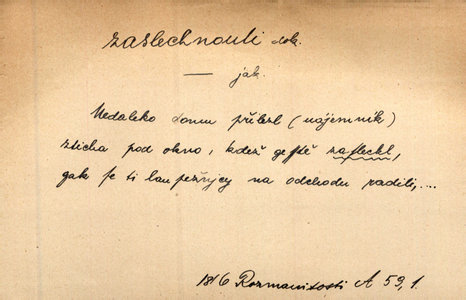 zaslechnouti dok.
— jak.
Nedaleko domu přilezl (nájemník)
zticha pod okno, kdež geště zaslechl,
gak se ti laupežnjcy na odchodu radili,...
1816 Rozmanitosti A 59,1.